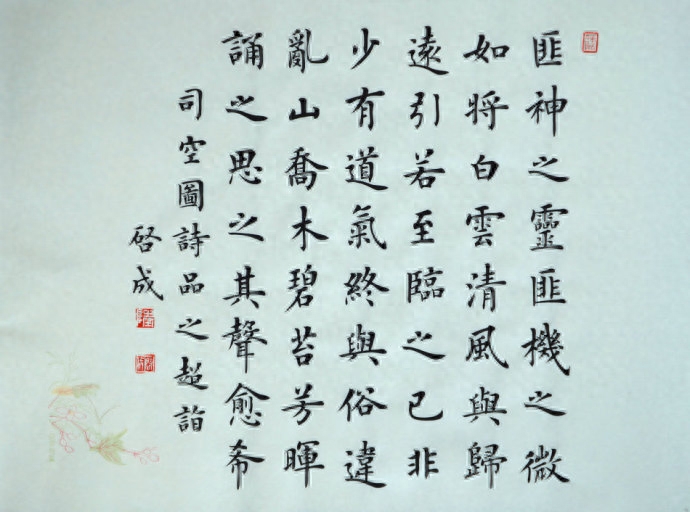 匪神之靈匪機之微
如將白雲清風與歸
遠引若至臨之已非
少有道氣終與俗違
亂山喬木碧苔芳暉
誦之思之其聲愈希
司空圖詩品之超詣
啓成